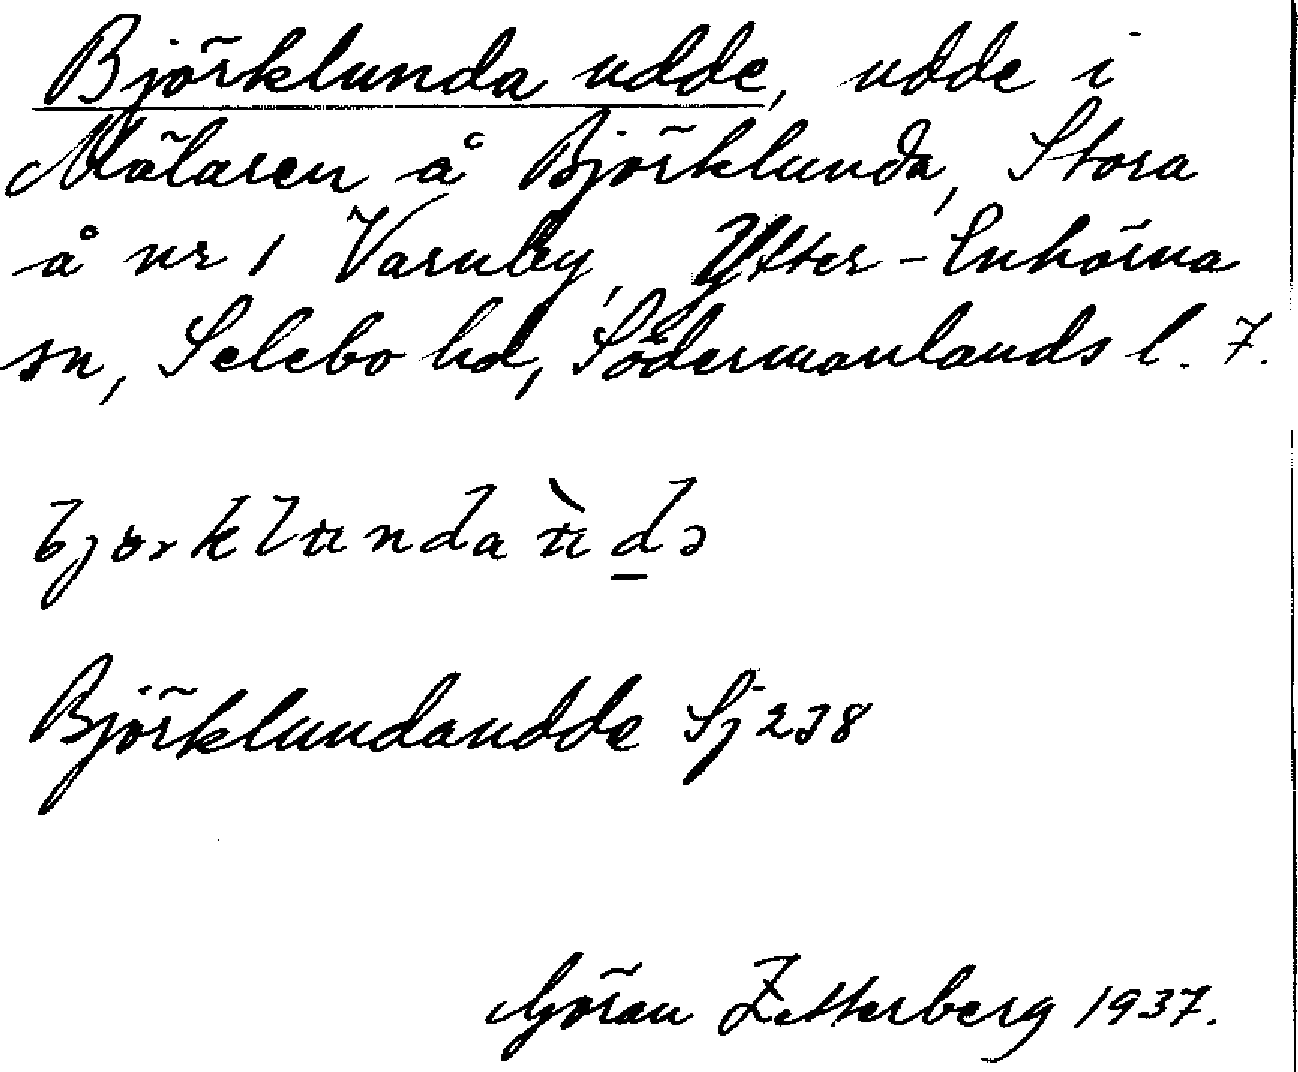 Björklunda udde, udde i
Mälaren å Björklunda, Stora
å nr 1 Varnby, Ytter-Enhörna
sn, Selebo hd, Södermanlands l. 7.
Björklundaudde Sj 238
Göran Zetterberg 1937.